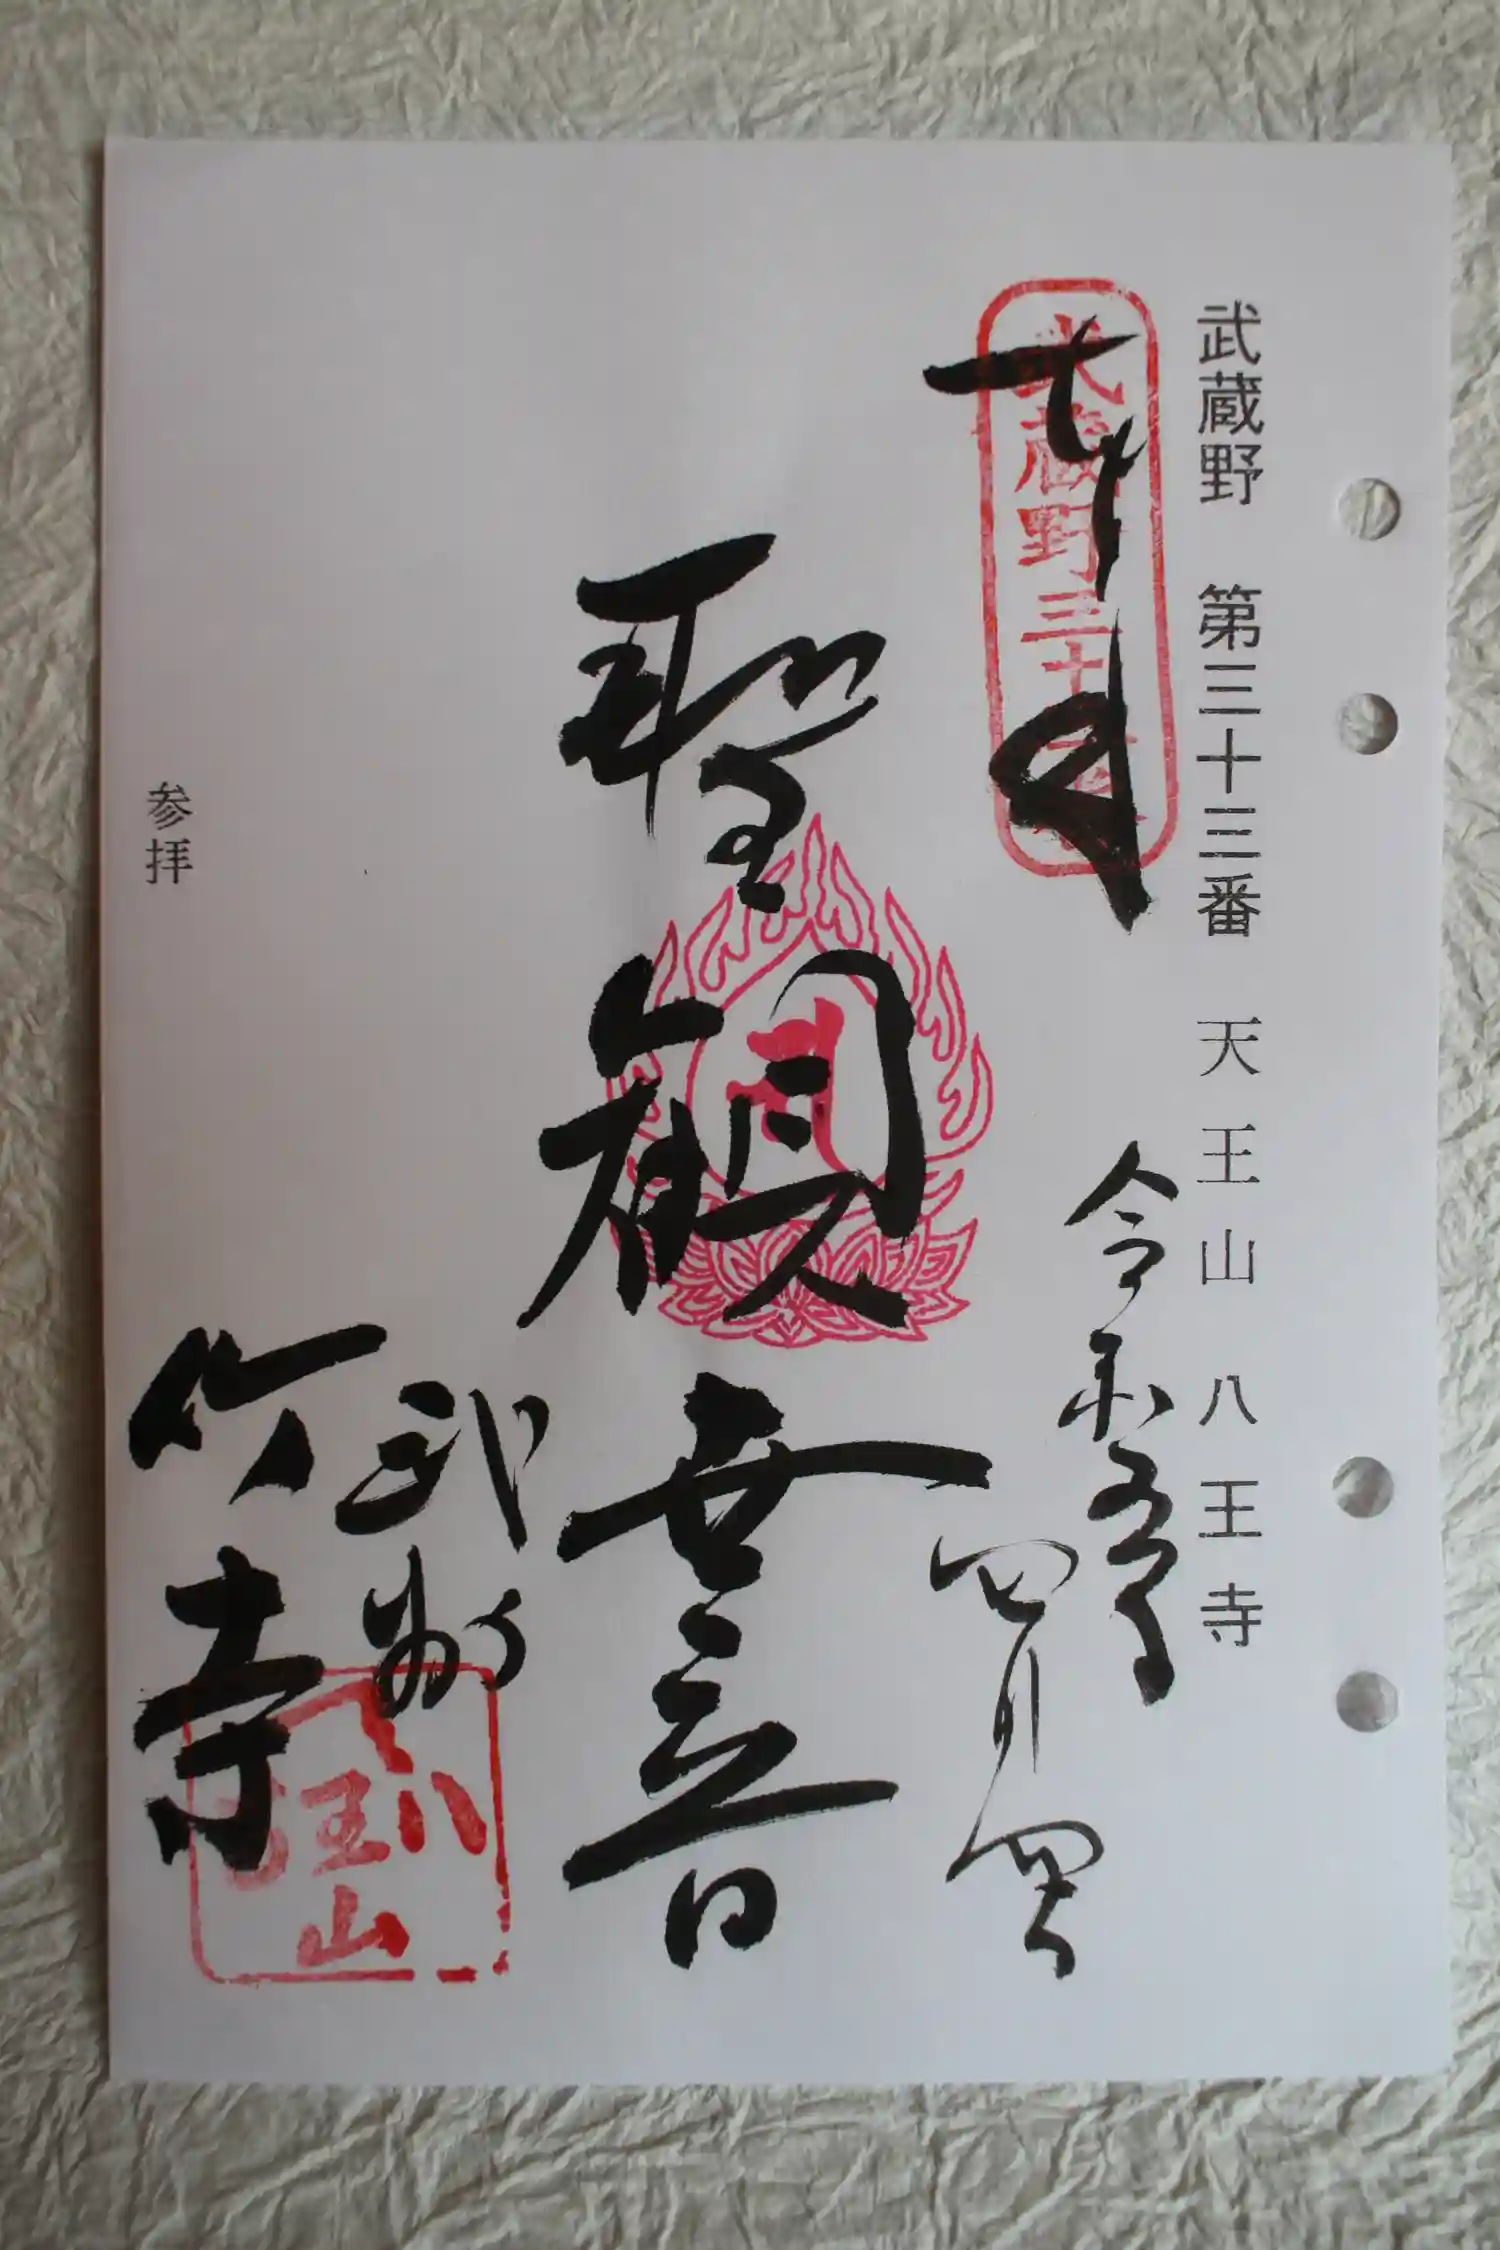 武蔵野 第三十三番 天王山 八王寺
奉拝
武蔵野三十三
令和五年
四月
聖観世音
武州
竹寺
八王山
参拝